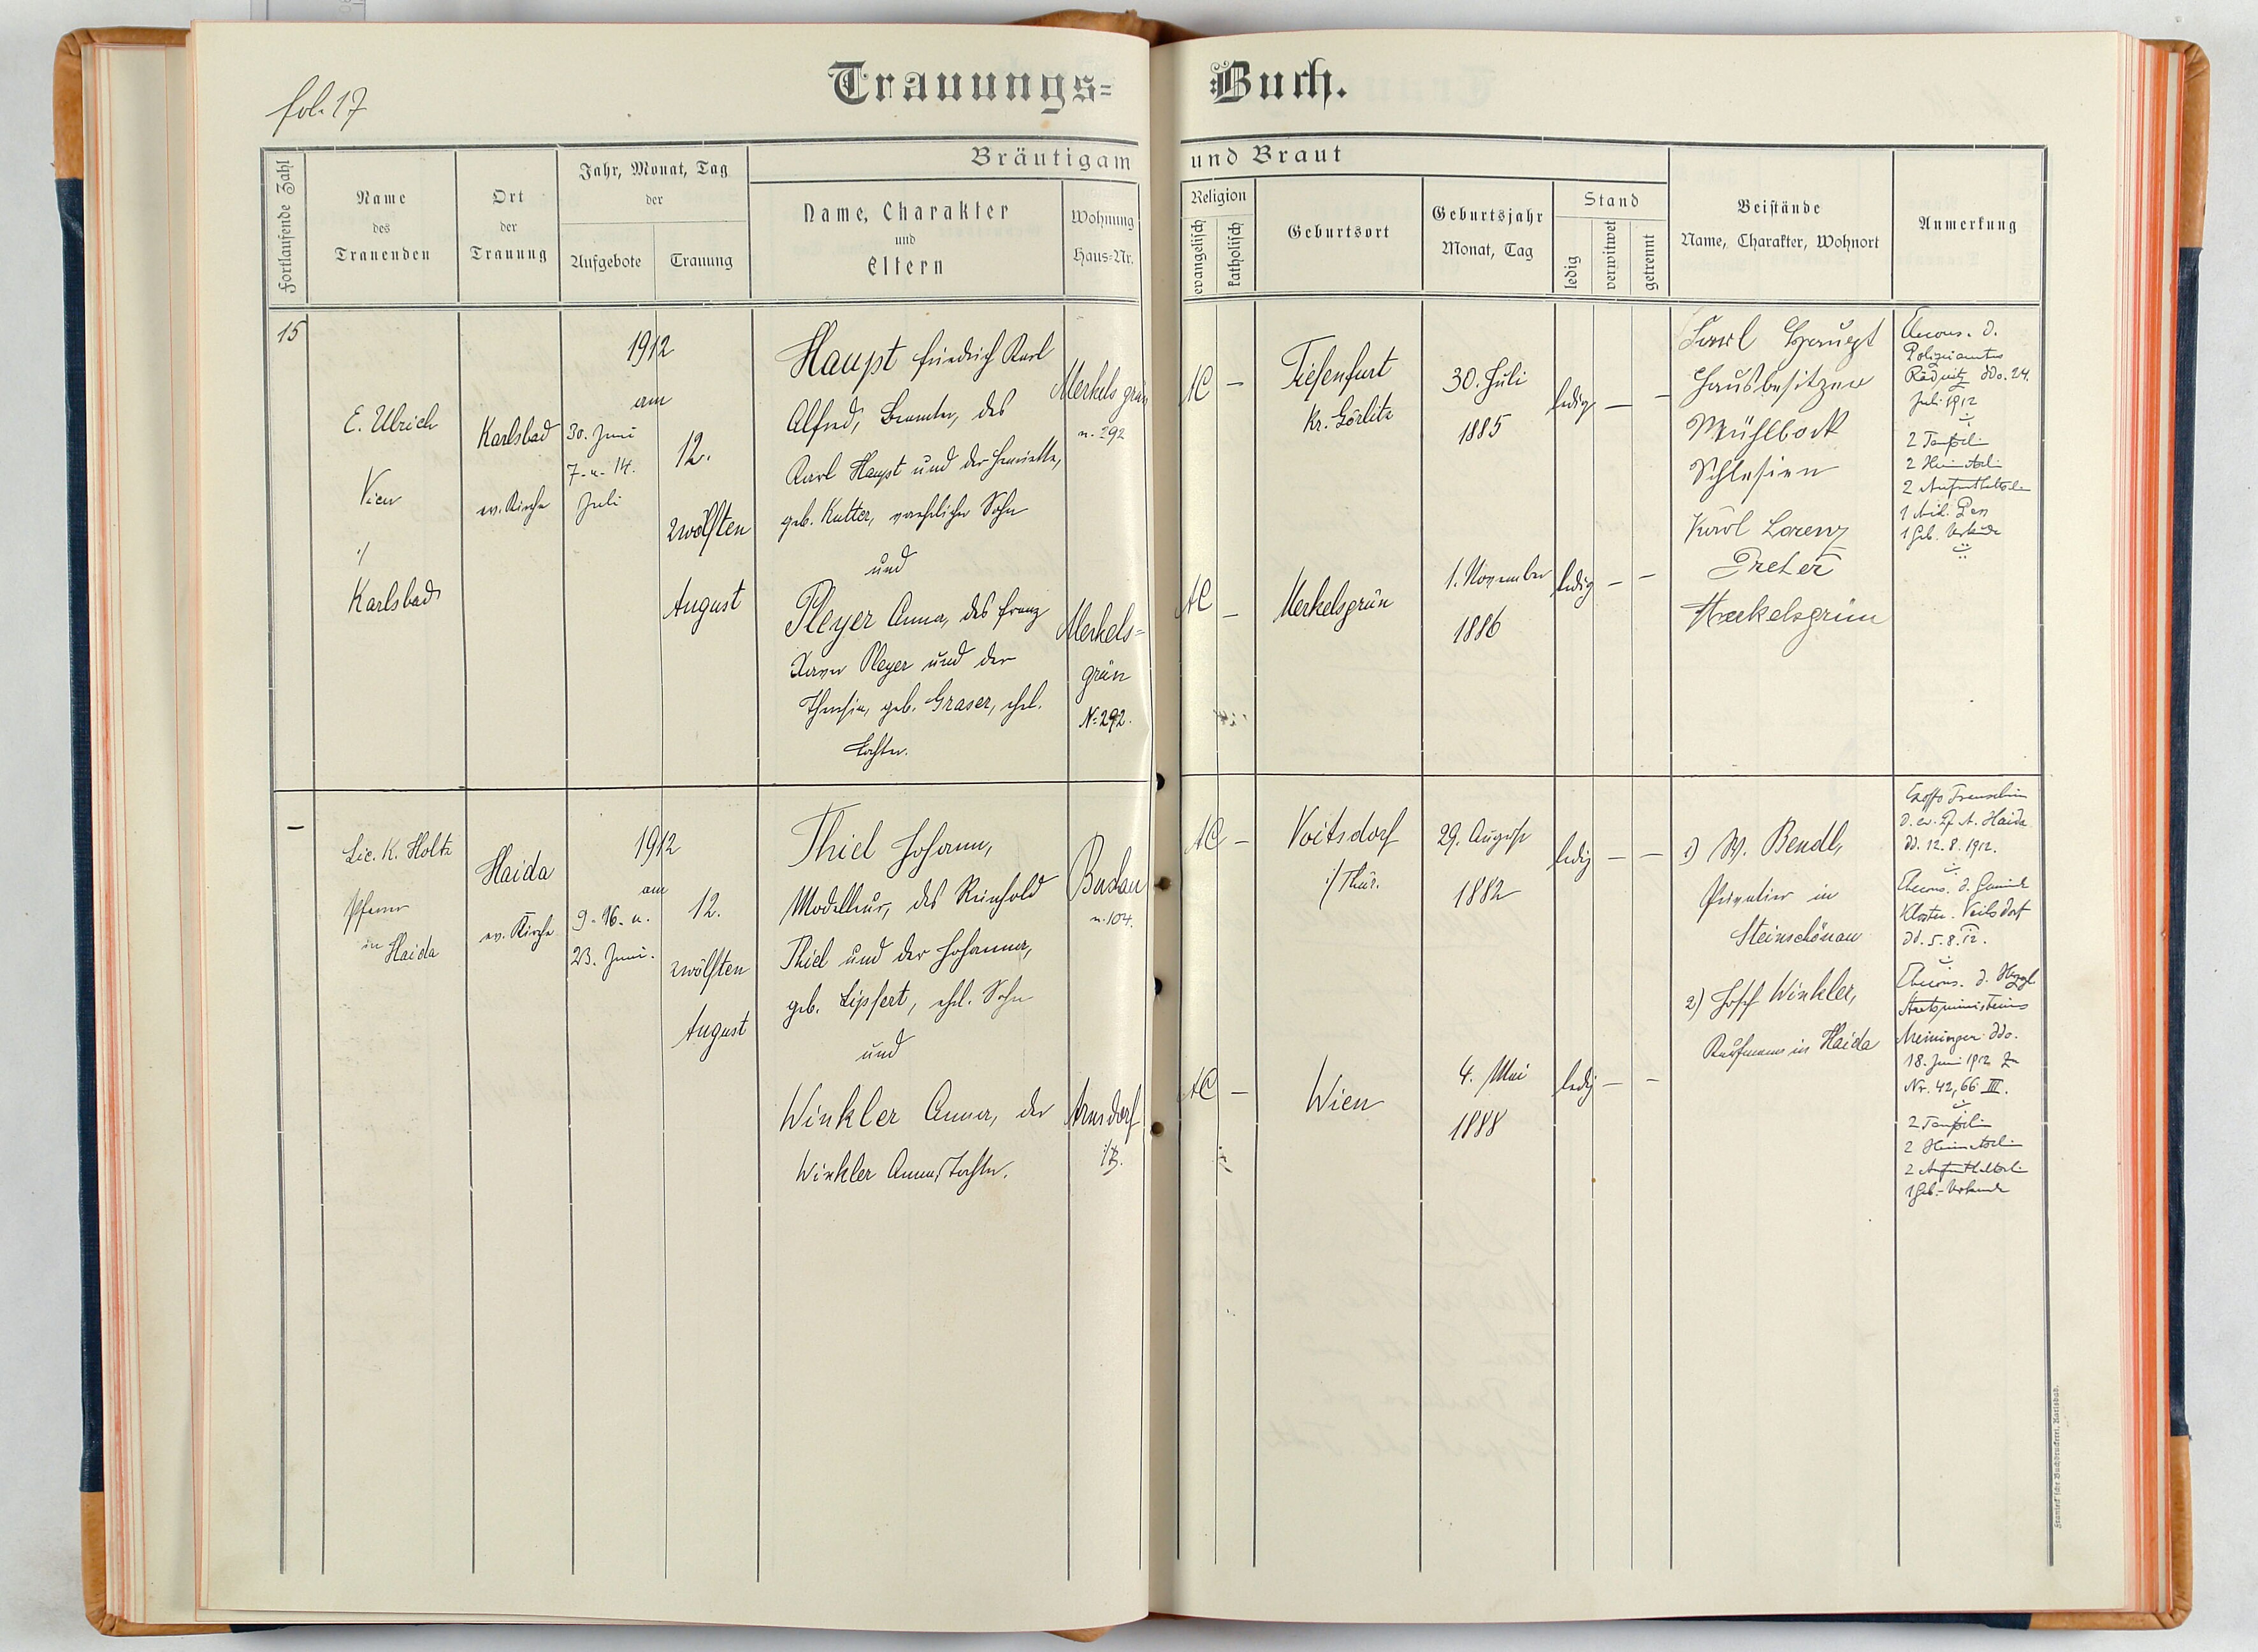 fol. 17
Trauungs= Buch.
Bräutigam und Braut
Fortlaufende Zahl
Name
des
Trauenden
Ort
der
Trauung
Jahr, Monat, Tag
der
Aufgebote
Trauung
Name, Charakter
und
Eltern
Wohnung
Haus=Nr.
Religion
evangelisch
katholisch
Geburtsort
Geburtsjahr
Monat, Tag
Stand
ledig
verwitwet
getrennt
Beistände
Name, Charakter, Wohnort
Anmerkung
15
E. Ulrich
Vicar
i/
Karlsbad
Karlsbad
ev. Kirche
1912
am
30. Juni
7. u. 14.
Juli
12.
zwölften
August
Haupt Friedrich Karl
Alfred, Beamter, des
Karl Haupt und der Henriette,
geb. Kutter, Sohn
und
Pleyer Anna, des Franz
Xaver Pleyer und der
Theresia, geb. Graser, ehel.
Tochter.
Merkelsgrün
n. 292
Merkels=
grün
N: 292.
AC –
Tiefenfurt
Kr. Görlitz
30. Juli
1885
ledig – –
AC –
Merkelsgrün
1. November
1886
ledig – –
Karl Haupt
Hausbesitzer
Mühlbock
Schlesien
Karl Lorenz
Dreher
Merkelsgrün
Ehecons. d.
Polizeiamtes
ddo. 24.
Juli 1912
2 Taufschein
2 Heimatsch
2 Aufenthaltsch
1 Mil. Pass
1 Geb. Urkunde
–
Lic. K. Holtz
Pfarrer
in Haida
Haida
ev. Kirche
1912
am
9. 16. u.
23. Juni.
12.
zwölften
August
Thiel Johann,
Modelleur, des Reinhold
Thiel und der Johanna,
geb. Lipfert, ehel. Sohn
und
Winkler Anna, der
Winkler Anna, Tochter.
n. 104.
Arnsdorf
i/B.
AC –
Voitsdorf
i/ Thür.
29. August
1882
ledig – –
AC –
Wien
4. Mai
1888
ledig – –
1) W. Bendl,
Privatier in
Steinschönau
2) Josef Winkler,
Kaufmann in Haida
Exoffo Trauschein
d. ev. Pf. A. Haida
dd. 12. 8. 1912.
Ehecons. d. Gemeinde
Kloster. Veilsdorf
dd. 5. 8. 12.
Ehecons. d. Herzgl
Staatsministeriums
Meiningen ddo.
18. Juni 1912
Nr. 42,66 III.
2 Taufschein
2 Heimatsch
2 Aufenthaltsch
1 Geb.-Urkunde